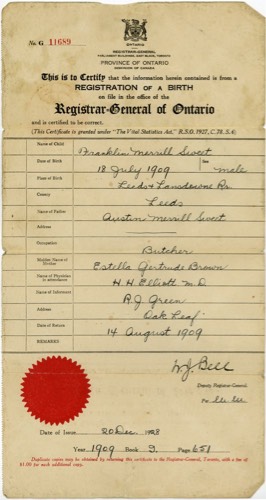 No. G 11689
ONTARIO
REGISTRAR-GENERAL
PARLIAMENT BUILDINGS, EAST BLOCK, TORONTO
PROVINCE OF ONTARIO
DOMINION OF CANADA
This is to Certify that the information herein contained is from a
REGISTRATION OF A BIRTH
on file in the office of the
Registrar-General of Ontario
and is certified to be correct.
(This Certificate is granted under "The Vital Statistics Act," R.S.O. 1927, C.78. S.4)
Name of Child Franklin Merrill Sweet
Date of Birth 18 July 1909 Sex male
Place of Birth Leeds & Lansdowne Rr.
County Leeds
Name of Father Austin Merrill Sweet
Address
Occupation Butcher
Maiden Name of Mother Estella Gertrude Brown
Name of Physician in attendance H H Elliott M.D
Name of Informant R.J. Green
Address Oak Leaf
Date of Return 14 August 1909
REMARKS
W.J. Bell
Deputy Registrar-General.
Per
Date of Issue, 20 Dec.
Year 1909 Book 9. Page 651
Duplicate copies may be obtained by returning this certificate to the Registrar-General, Toronto, with a fee of
$1.00 for each additional copy.